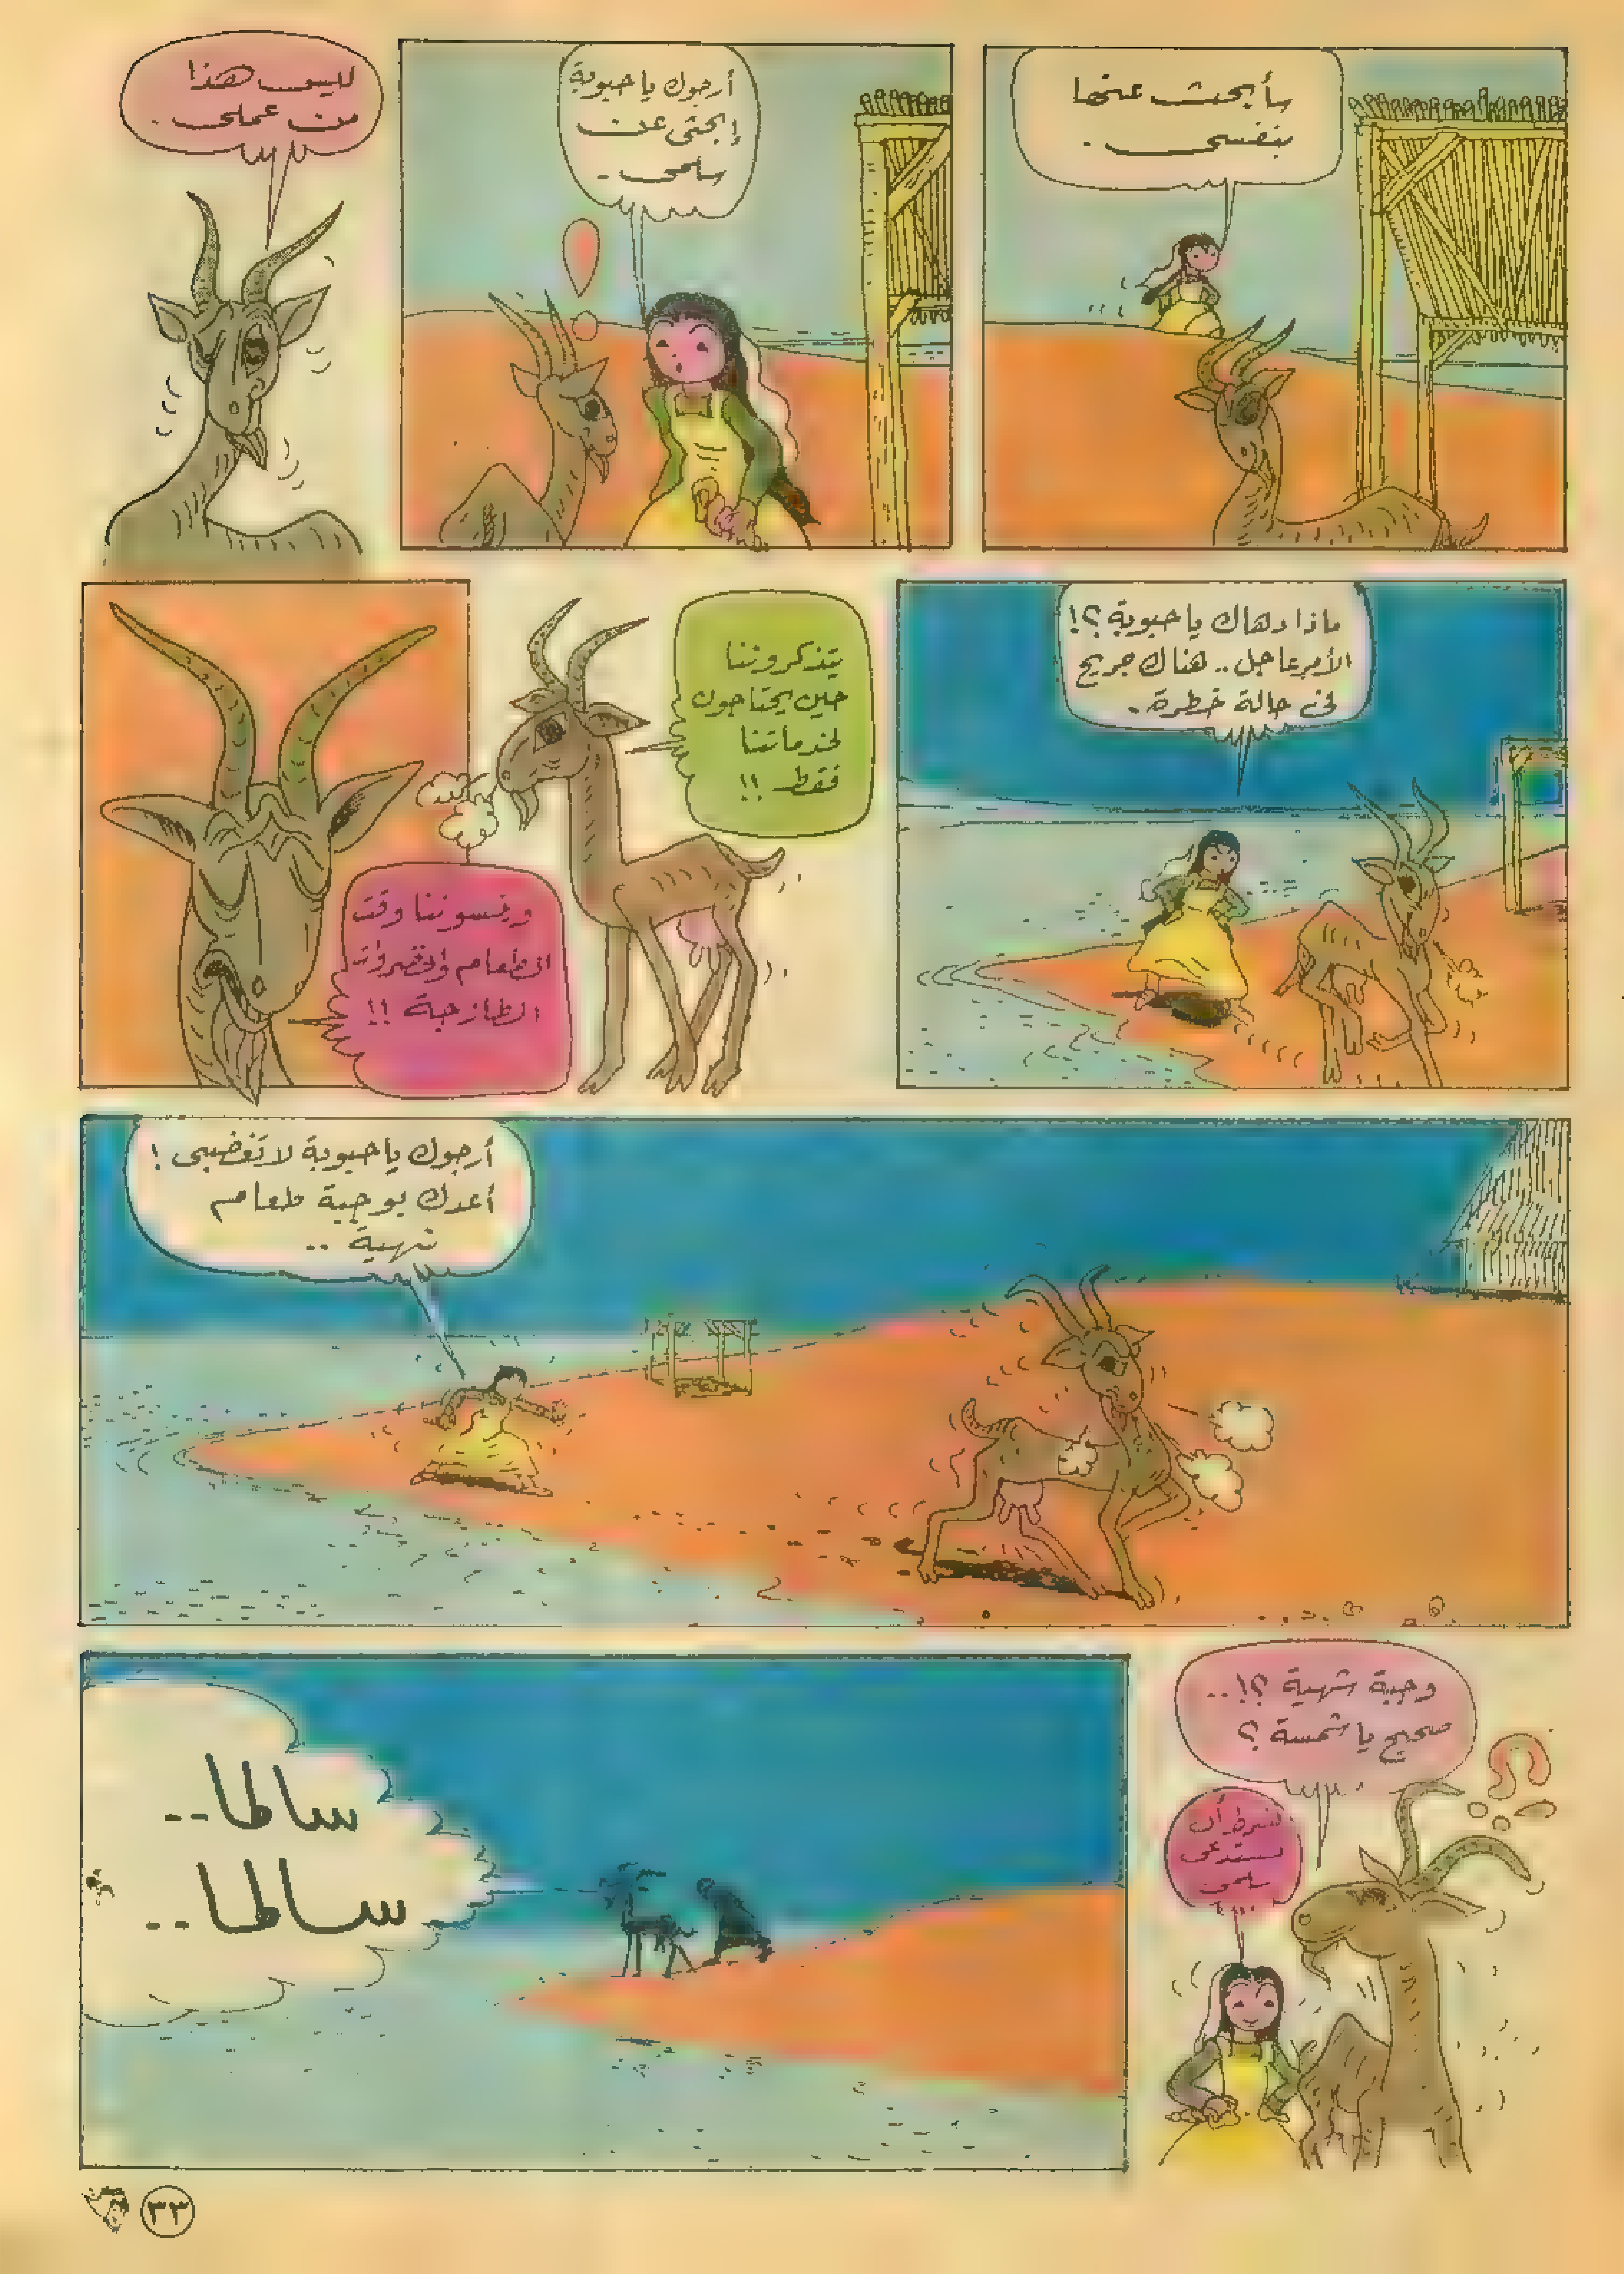 سأبحث عنها
بنفسى .
أرجوك يا حبوبة
إبحثى عن
سلمى .
ليس هذا
من عملى .
ماذا دهاك يا حبوبة ؟!
الأمر عاجل .. هناك جريح
فى حالة خطرة .
يتذكروننا
حين يحتاجون
لخدماتنا
فقط !!
وينسوننا وقت
الطعام والخضروات
الطازجة !!
أرجوك يا حبوبة لا تغضبى !
أعدك بوجبة طعام
شهية ..
وجبة شهية ؟! ..
صحيح يا شمسة ؟
بشرط أن
تستدعى
سلمى
سالما ..
سالما ..
٣٣